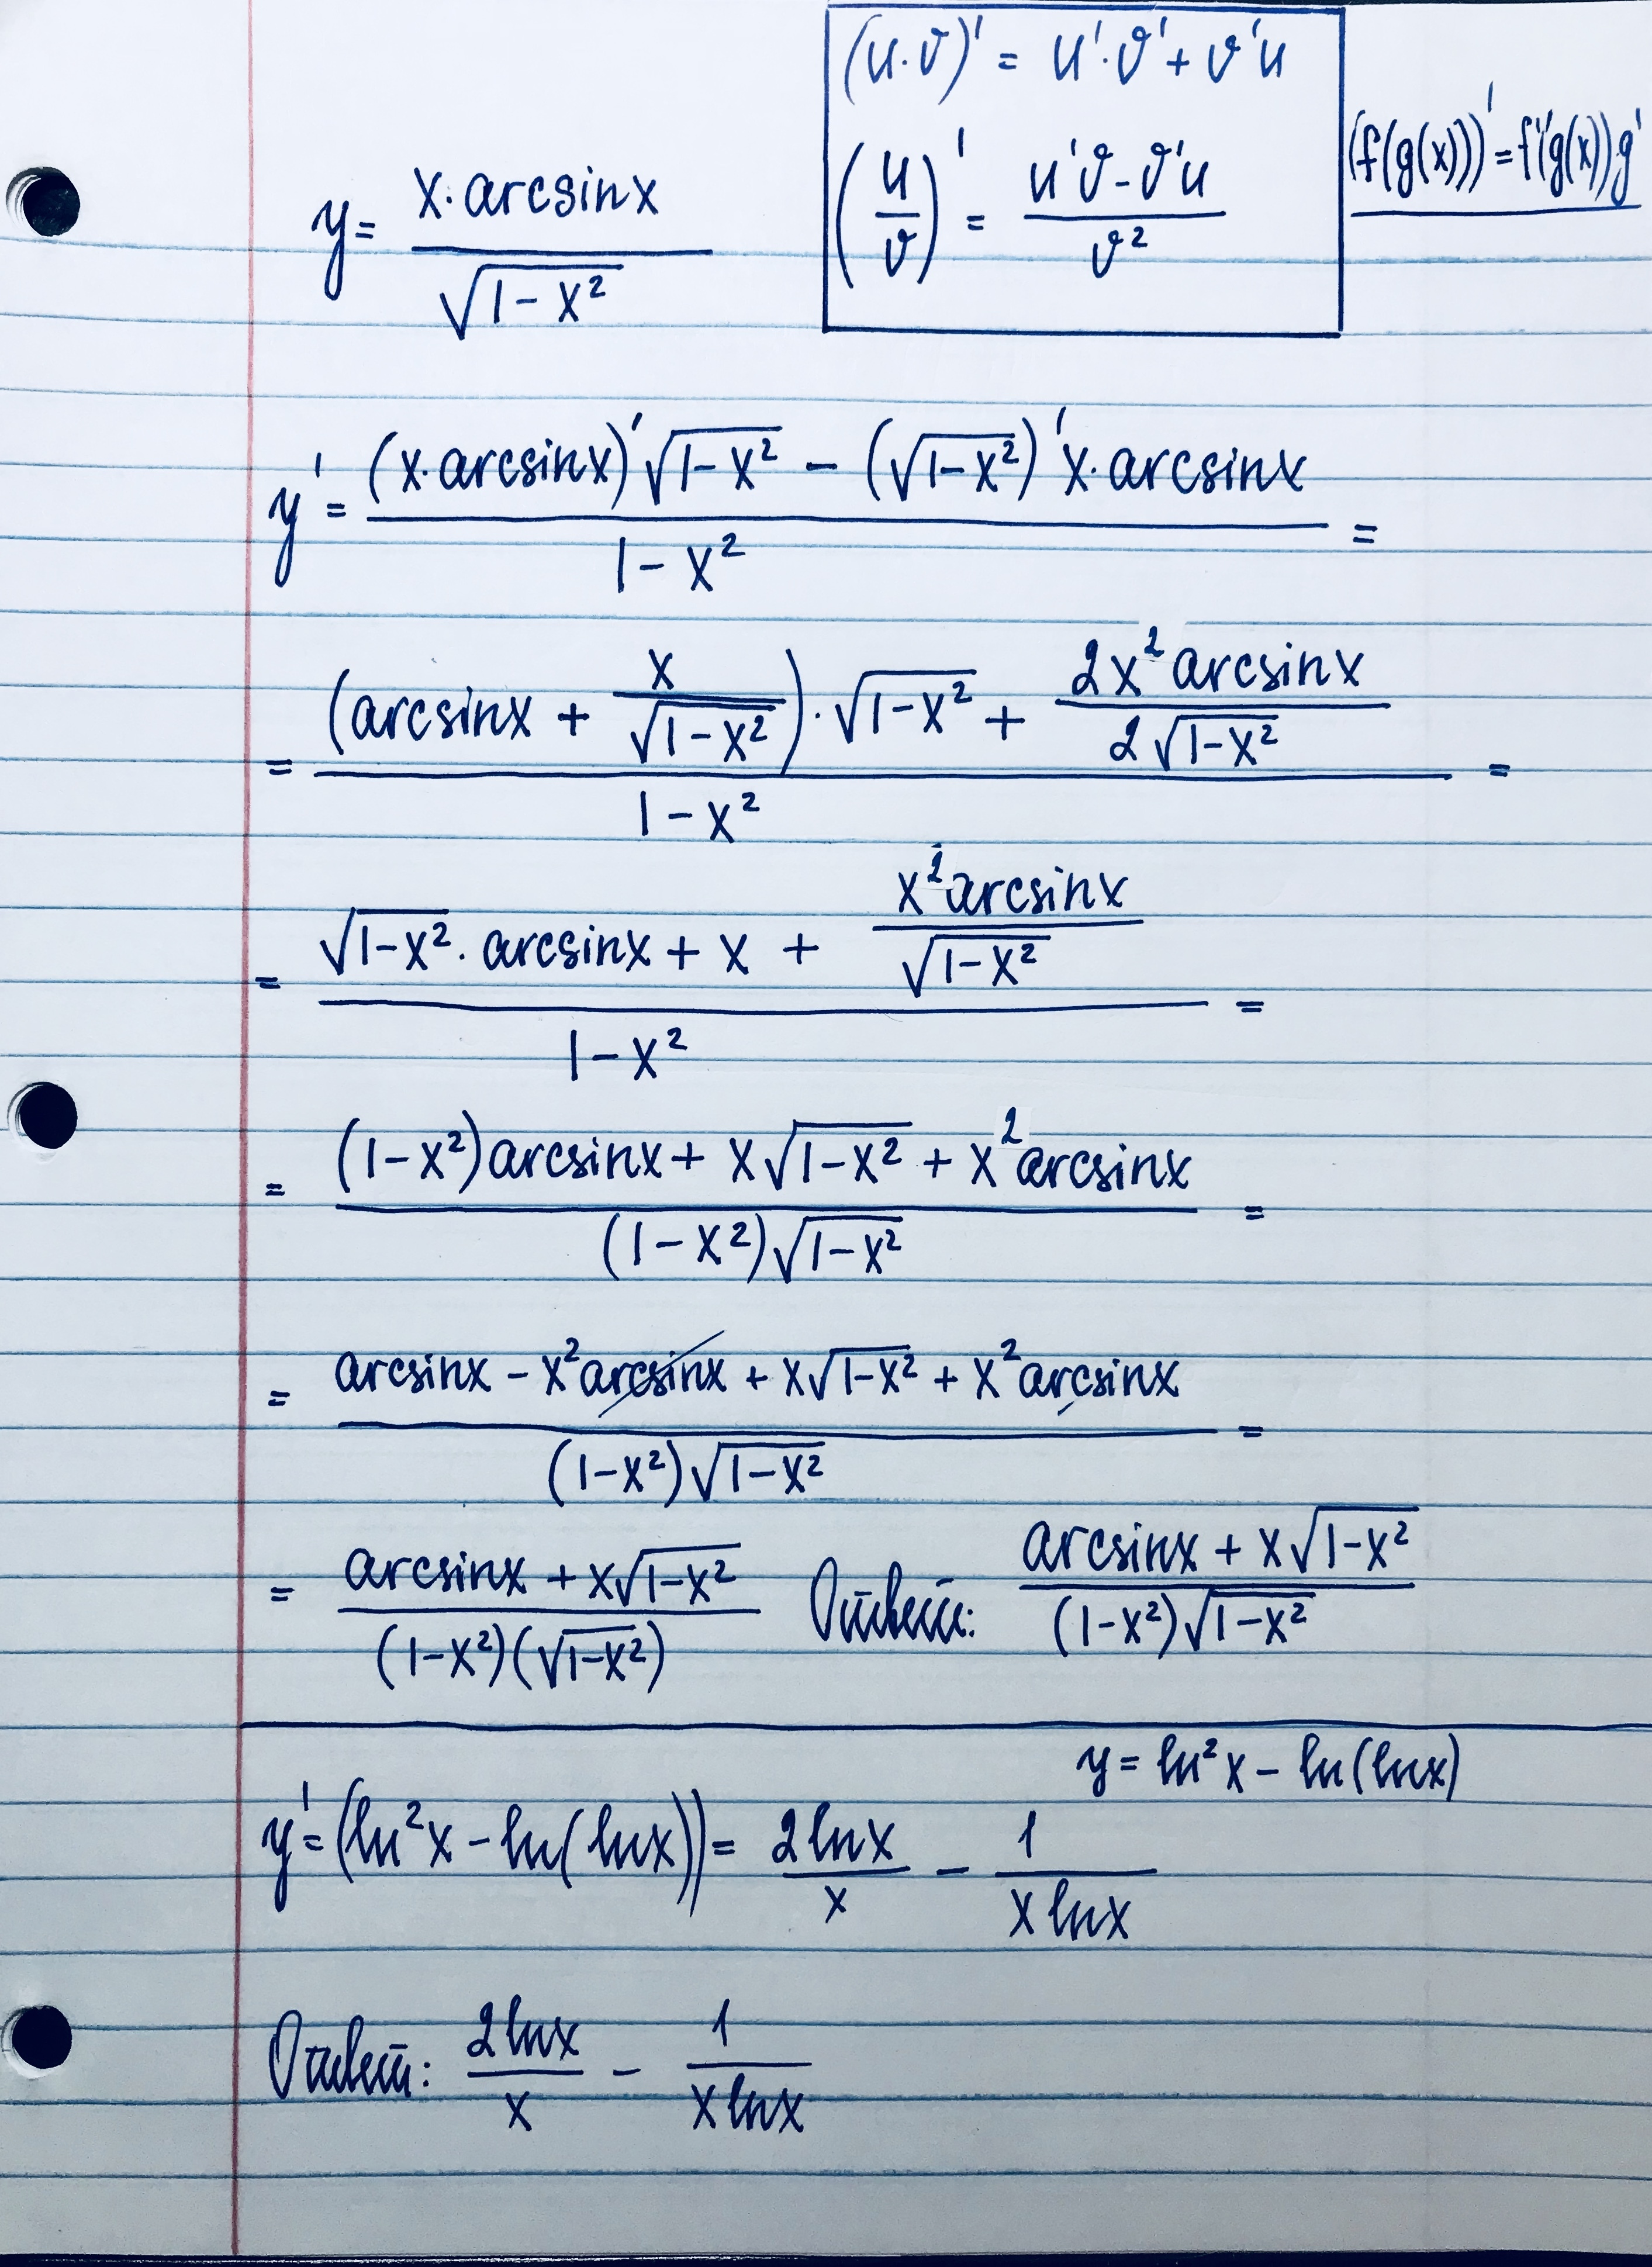 (u·v)' = u'·v' + v'u
(u/v)' = (u'v - v'u)/v²
(f(g(x)))' = f'(g(x))g'
y = (x·arcsinx)/√(1-x²)
y' = ((x·arcsinx)'√(1-x²) - (√(1-x²))'x·arcsinx)/(1-x²) =
= ((arcsinx + x/√(1-x²))·√(1-x²) + (2x²arcsinx)/(2√(1-x²)))/(1-x²) =
= (√(1-x²)·arcsinx + x + (x²arcsinx)/√(1-x²))/(1-x²) =
= ((1-x²)arcsinx + x√(1-x²) + x²arcsinx)/((1-x²)√(1-x²)) =
= (arcsinx - x²arcsinx + x√(1-x²) + x²arcsinx)/((1-x²)√(1-x²)) =
= (arcsinx + x√(1-x²))/((1-x²)(√(1-x²))) Ответ: (arcsinx + x√(1-x²))/((1-x²)√(1-x²))
y = ln²x - ln(lnx)
y' = (ln²x - ln(lnx)) = 2lnx/x - 1/(x lnx)
Ответ: 2lnx/x - 1/(x lnx)